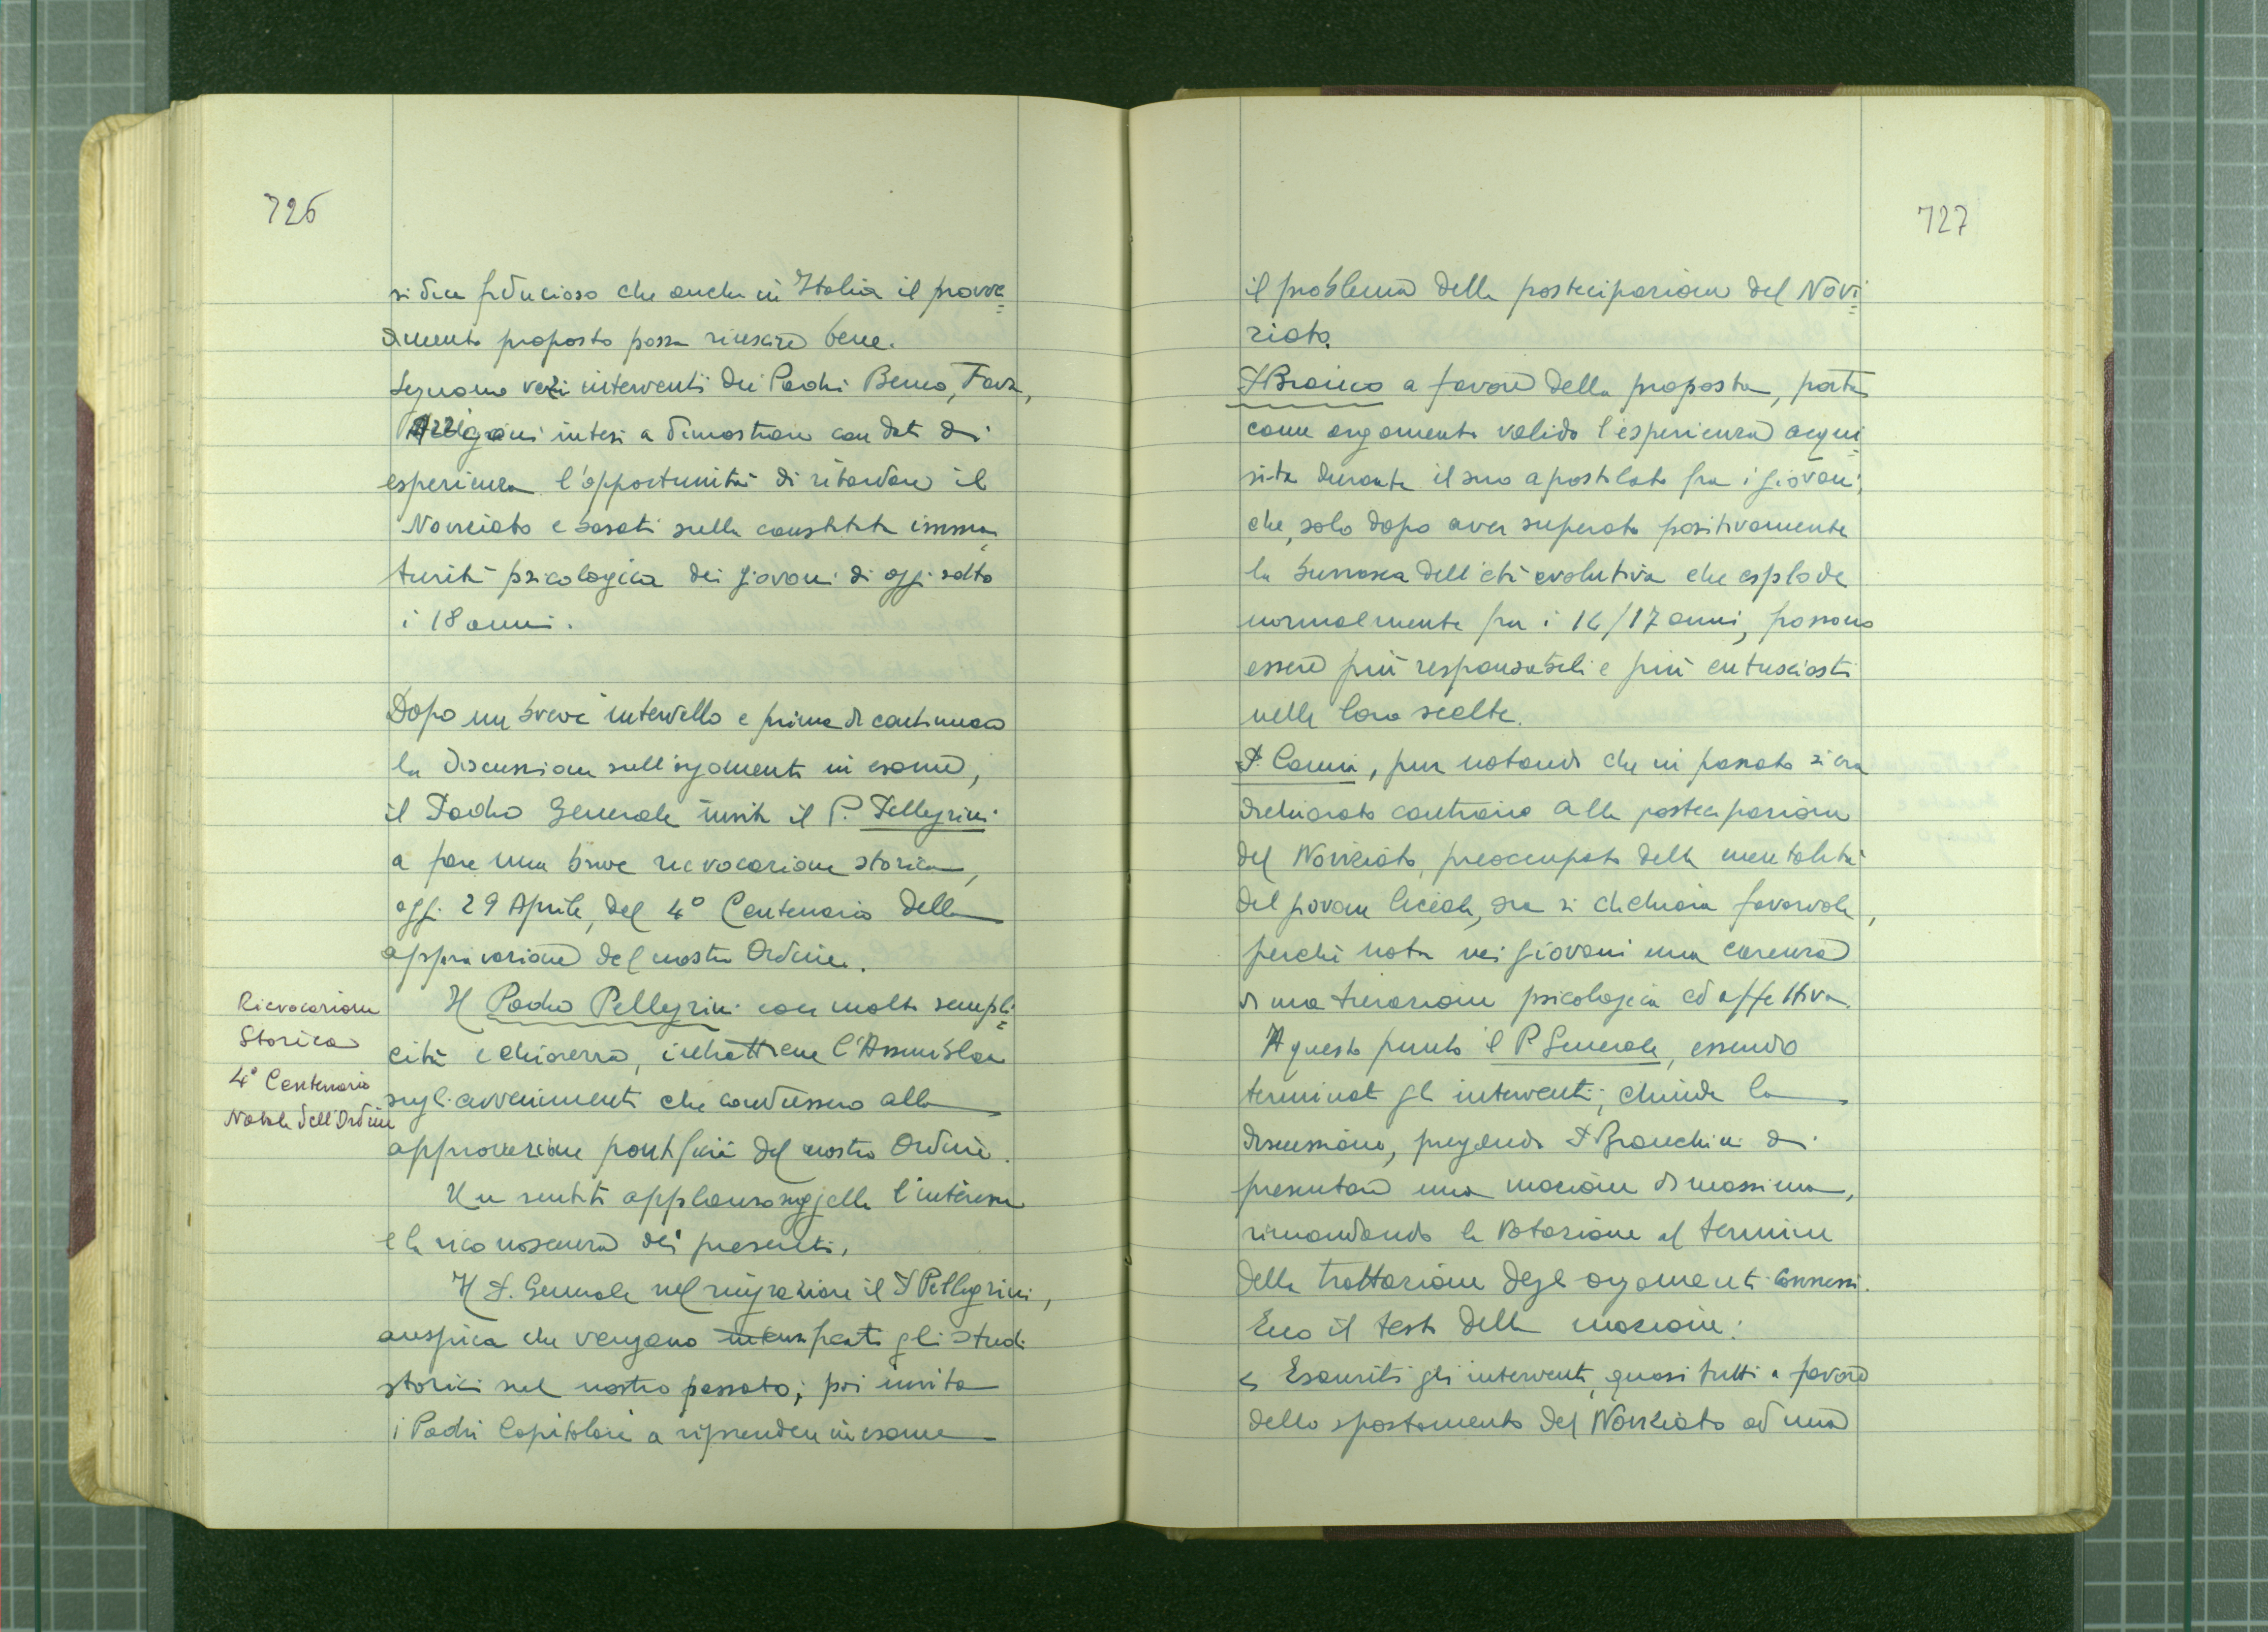 726
si dice fiducioso che anche in Italia il provve=
dimento proposto possa riuscire bene.
Seguono vari interventi dei Padri Beneo, Fava,
Arrigoni intesi a dimostrare con dati di
esperienza l'opportunità di ritardare il
Noviziato e basati sulla constatata imma=
turità psicologica dei giovani di oggi sotto
i 18 anni.
Dopo un breve intervallo e prima di continuare
la discussione sull'argomento in esame,
il Padre Generale invita il P. Pellegrini
a fare una breve rievocazione storica,
oggi 29 Aprile, del 4° Centenario della
approvazione del nostro Ordine.
Rievocazione
Storica
4° Centenario
Natale dell'Ordine
Il Padre Pellegrini con molta sempli=
cità e chiarezza, intrattiene l'Assemblea
sugli avvenimenti che condussero alla
approvazione pontificia del nostro Ordine.
Un sentito applauso suggella l'interesse
e la riconoscenza dei presenti.
Il P. Generale nel ringraziare il P. Pellegrini,
auspica che vengano intensificati gli studi
storici sul nostro passato; poi invita
i Padri Capitolari a riprendere in esame
727
il problema della postecipazione del Novi=
ziato.
P. Bianco a favore della proposta, porta
come argomento valido l'esperienza acqui=
sita durante il suo apostolato fra i giovani,
che, solo dopo aver superato positivamente
la burrasca dell'età evolutiva che esplode
normalmente fra i 16/17 anni, possono
essere più responsabili e più entusiasti
nelle loro scelte.
P. , pur notando che in passato si era
dichiarato contrario alla postecipazione
del Noviziato, preoccupato della mentalità
del giovane liceale, ora si dichiara favorevole,
perchè nota nei giovani una carenza
di maturazione psicologica ed affettiva.
A questo punto il P. Generale, essendo
terminati gli interventi, chiude la
discussione, pregando P. Bianchini di
presentare una mozione di massima,
rimandando la votazione al termine
della trattazione degli argomenti connessi.
Ecco il testo della mozione:
« Esauriti gli interventi, quasi tutti a favore
dello spostamento del Noviziato ad una